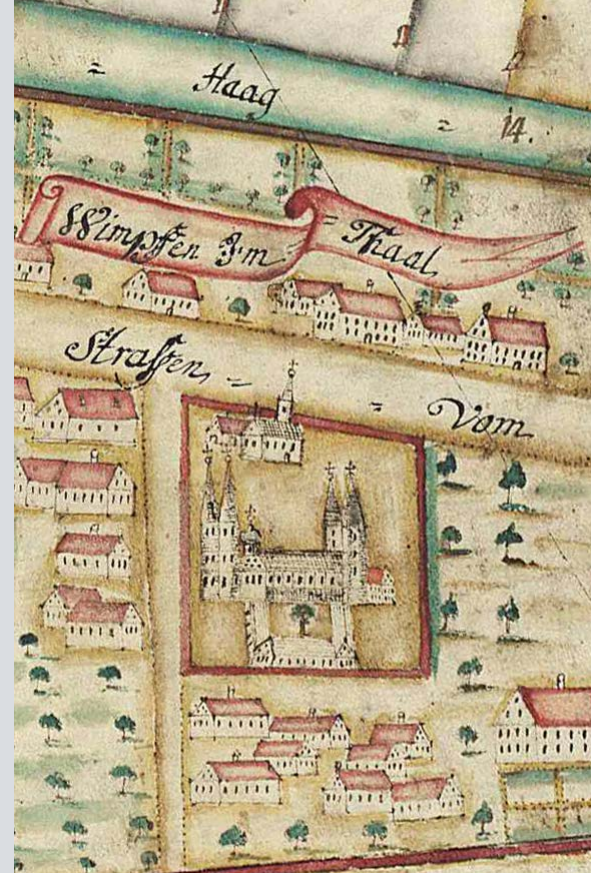 = Haag = 14.
Wimpffen Jm = Thaal
Strassen, = = Vom